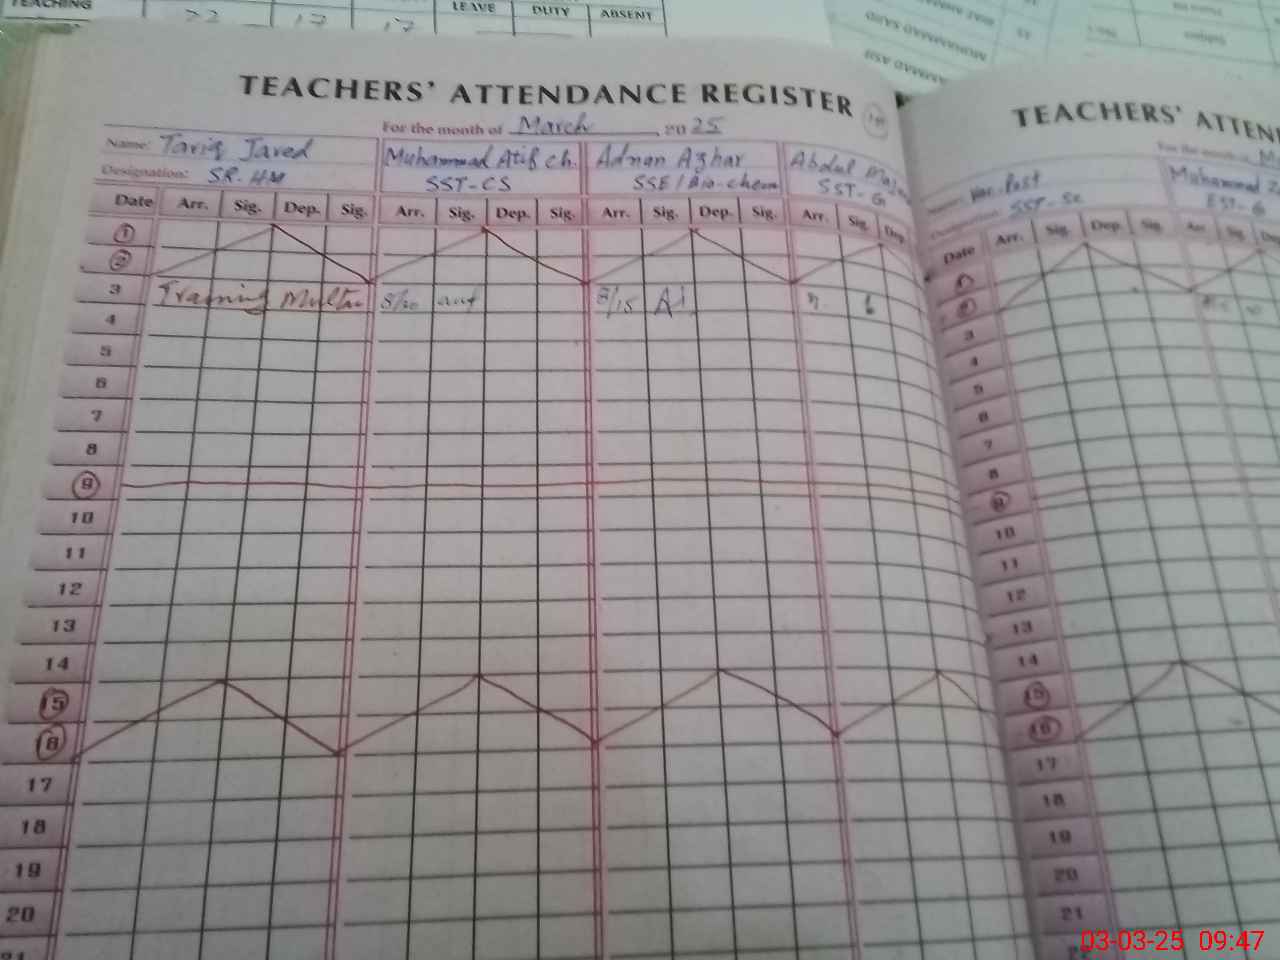 TEACHING
22 17 17
LEAVE DUTY ABSENT
MUHAMMAD SAJID
TEACHERS' ATTENDANCE REGISTER
For the month of March, 2025
Name: Tariq Javed Muhammad Atif Ch. Adnan Azhar Abdul
Designation: SR. HM SST-CS SSE/Bio-chem SST-G
Date Arr. Sig. Dep. Sig. Arr. Sig. Dep. Sig. Arr. Sig. Dep. Sig. Arr. Sig. Dep.
1
2
3 Training 8/10 8/15
4
5
6
7
8
9
10
11
12
13
14
15
16
17
18
19
20
21
TEACHERS' ATTEN
For the month of
Name: Muhammad
Designation: SST-Sc EST-G
Date Arr. Sig. Dep. Sig. Arr. Sig.
1
2
3
4
5
6
7
8
9
10
11
12
13
14
15
16
17
18
19
20
21
22
03-03-25 09:47